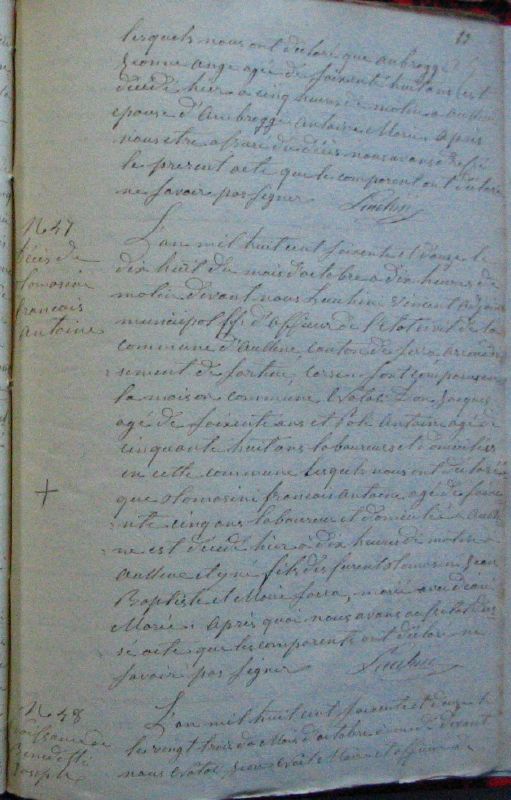 13
lesquels nous ont déclaré que aubrogge
ange agé de soixante huit ans est
décédé hier a cinq heures de matin a aullene
epouse d'Aubroggi Antoine Marie Apres
nous etre assuré du décès nous avons dressé
le present acte que les comparent ont déclaré
ne savoir pas signer
N 47
Décès de
tomasini
francois
Antoine
L'an mil huit cent soixante et douze le
dix huit du mois d'octobre a dix heures de
matin devant nous Vincent adjoint
municipal ff d'officier de l'Etat civil de la
commune d'Aullene, canton de Serra arrondis
sement de Sartene, Corse, sont comparus en
la maison commune Jacques
agé de soixante ans et Poli Antoine agé de
cinquante huit ans laboureurs et domiciliés
en cette commune lesquels nous ont declaré
que tomasini francois antoine agé de soixa
nte cinq ans laboureur et domicilié a Aulle
ne est décédé hier a dix heures de matin a
aullene et y né fils des furent tomasini Jean
Baptiste et Marie marié avec
Marie. Apres quoi nous avons
se acte que les comparents ont déclaré ne
savoir pas signer
N 48
Naissance de
Benedetti
Joseph
L'an mil huit cent soixante et douze le
les vingt trois du Mois d'octobre a midi devant
nous Jean Maire et officier